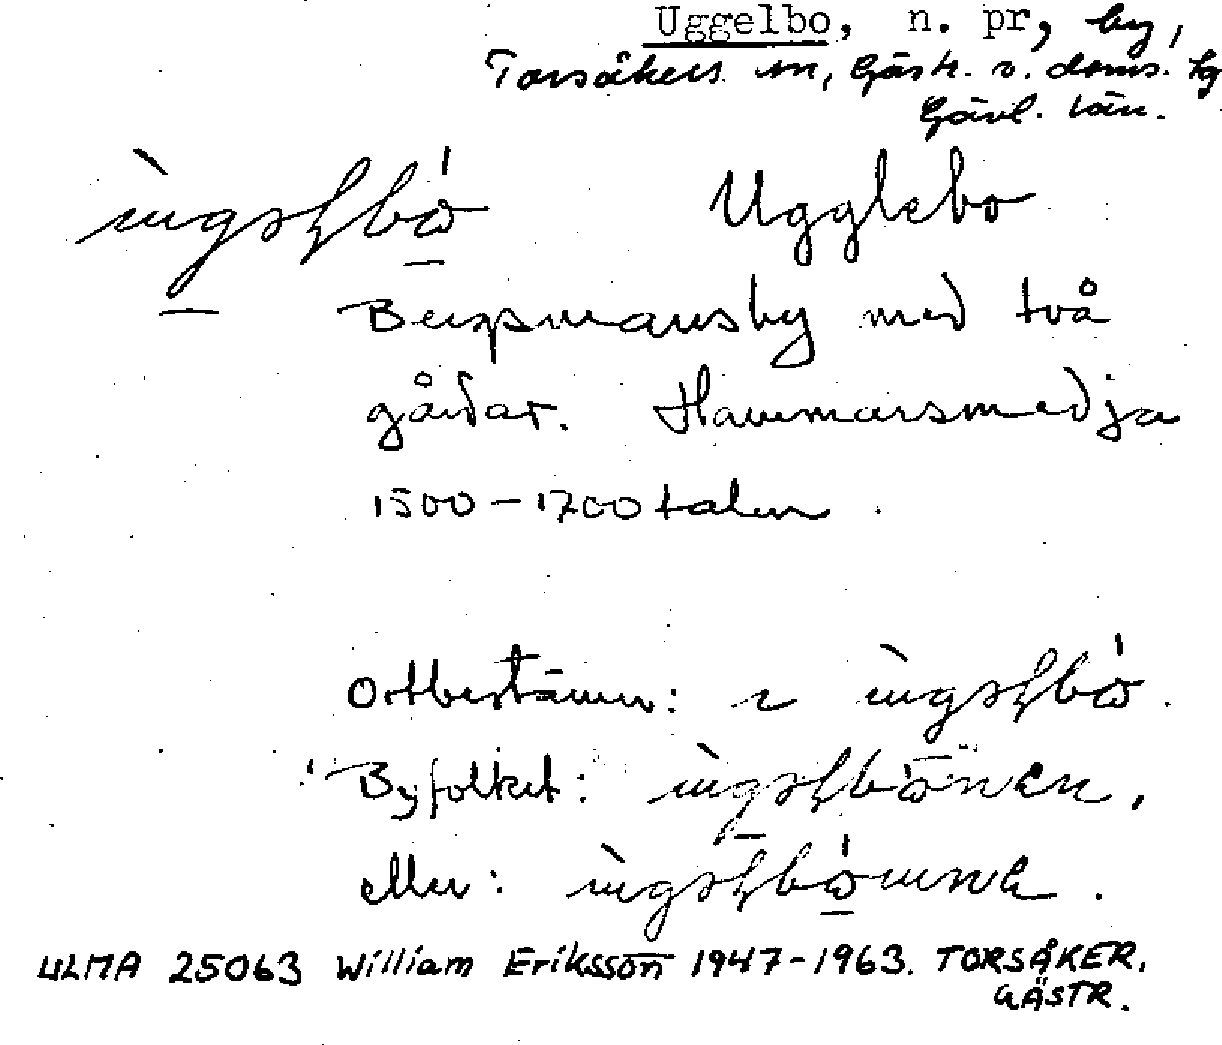 Uggelbo, n. pr, by,
Torsåkers sn, Gästr. v. doms. tg
Gävl. län.
Ugglebo
Bergsmansby med två
gårdar. Hammarsmedja
1500-1700talen.
Ortbestämn:
Byfolket:
eller:
ULMA 25063 William Eriksson 1947-1963. TORSÅKER,
GÄSTR.